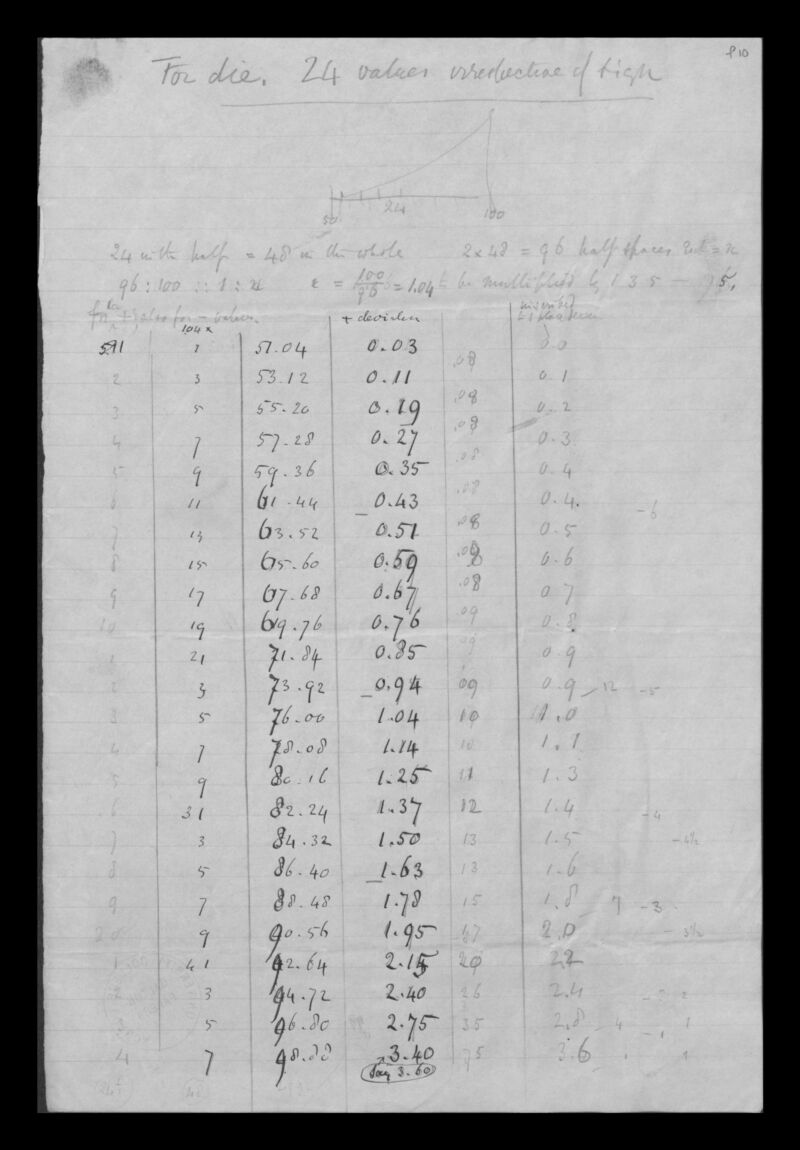 P10
For die. 24 values irrespective of sign
50 24 100
24 in the half = 48 in the whole 2 x 48 = 96 half spaces
96 : 100 :: 1 : x x = 100/96 = 1.04 to be multiplied by 1 3 5 — 95.
for + also for — values.
104 x + deviates
591 1 51.04 0.03 0 0
2 3 53.12 0.11 .08 0.1
3 5 55.20 0.19 .08 0.2
4 7 57.28 0.27 .08 0.3
5 9 59.36 0.35 .08 0.4
6 11 61.44 0.43 .08 0.4. -6
7 13 63.52 0.51 .08 0.5
8 15 65.60 0.59 .08 0.6
9 17 67.68 0.67 .08 0.7
10 19 69.76 0.76 .09 0.8
1 21 71.84 0.85 .09 0.9
2 3 73.92 0.94 09 0.9 12 -5
3 5 76.00 1.04 10 1.0
4 7 78.08 1.14 10 1.1
5 9 80.16 1.25 11 1.3
6 31 82.24 1.37 12 1.4 -4
7 3 84.32 1.50 13 1.5 -4½
8 5 86.40 1.63 13 1.6
9 7 88.48 1.78 15 1.8 7 -3
20 9 90.56 1.95 17 2.0 -3½
1 41 92.64 2.15 20 2.2
2 3 94.72 2.40 26 2.4 2
3 5 96.80 2.75 35 2.8 4 -1 1
4 7 98.88 3.40 75 3.6 1
Say 3.60